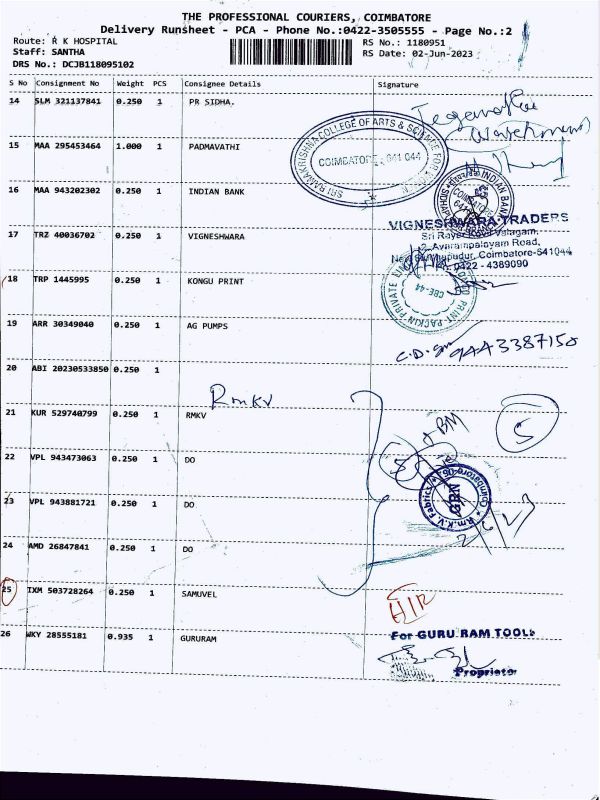 THE PROFESSIONAL COURIERS, COIMBATORE
Delivery Runsheet - PCA - Phone No.:0422-3505555 - Page No.:2
Route: R K HOSPITAL
RS No.: 1180951
Staff: SANTHA
RS Date: 02-Jun-2023
DRS No.: DCJB118095102
S No Consignment No Weight PCS Consignee Details Signature
14 SLM 321137841 0.250 1 PR SIDHA.
SRI RAMAKRISHNA COLLEGE OF ARTS & SCIENCE FOR
COIMBATORE - 641 044
15 MAA 295453464 1.000 1 PADMAVATHI
16 MAA 943202302 0.250 1 INDIAN BANK
INDIAN BANK
COIMBATORE
17 TRZ 40036702 0.250 1 VIGNESHWARA
VIGNESHWARA TRADERS
2, Avarampalayam Road,
Coimbatore-641044
0422 - 4389090
18 TRP 1445995 0.250 1 KONGU PRINT
PRINT PACKIN PRIVATE
CBE-44
19 ARR 30349040 0.250 1 AG PUMPS
9443387150
20 ABI 20230533850 0.250 1
Rmkv
21 KUR 529740799 0.250 1 RMKV
BM
5
22 VPL 943473063 0.250 1 DO
23 VPL 943881721 0.250 1 DO
Rm.K.V Fabrics
Coimbatore-06
GRN
2/6/23
24 AMD 26847841 0.250 1 DO
25 IXM 503728264 0.250 1 SAMUVEL
26 WKY 28555181 0.935 1 GURURAM
For GURU RAM TOOLS
Proprietor